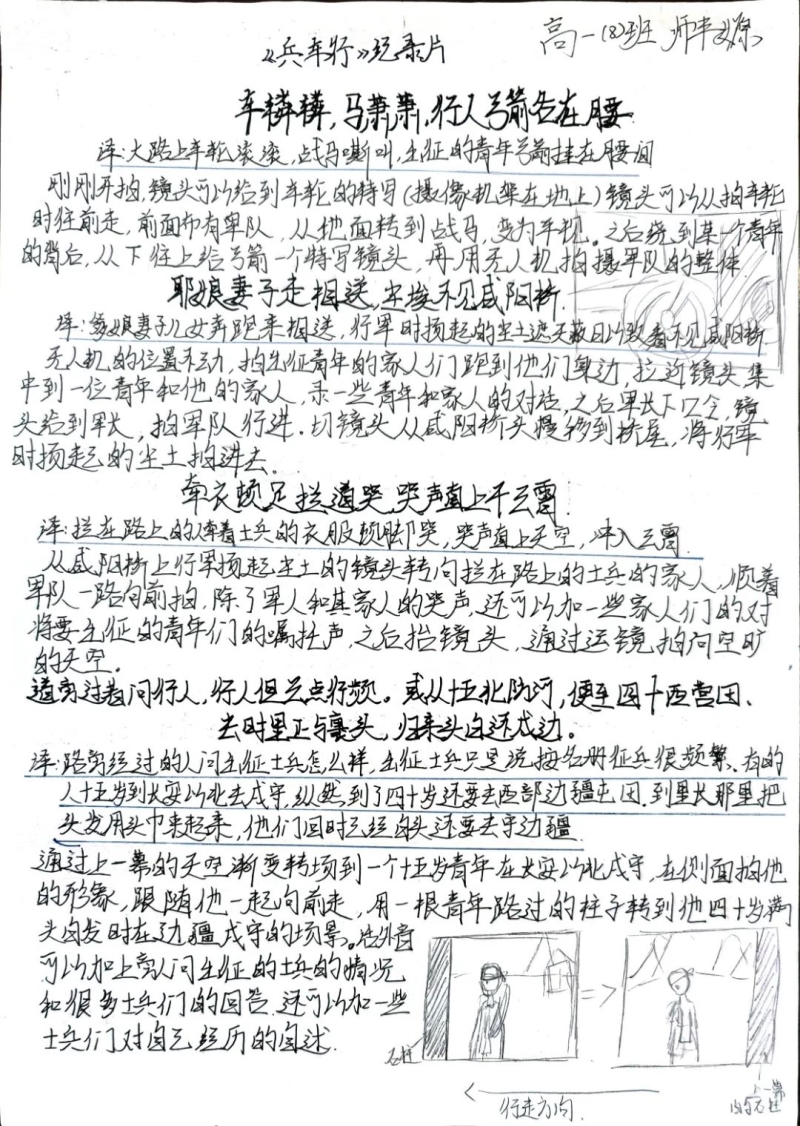 高一(8)班 师丰源
《兵车行》纪录片
车辚辚,马萧萧,行人弓箭各在腰.
译:大路上车轮滚滚,战马嘶叫,出征的青年弓箭挂在腰间
刚刚开拍,镜头可以给到车轮的特写(摄像机架在地上)镜头可以从拍车轮
时往前走,前面布有军队,从地面转到战马,变为平视。之后绕到某一个青年
的背后,从下往上给弓箭一个特写镜头,再用无人机拍摄军队的整体
耶娘妻子走相送,尘埃不见咸阳桥.
译:爹娘妻子儿女奔跑来相送,行军时扬起的尘土遮天蔽日以致看不见咸阳桥
无人机的位置不动,拍出征青年的家人们跑到他们身边,拉近镜头,集
中到一位青年和他的家人,录一些青年和家人的对话,之后军长下口令,镜
头给到军长,拍军队行进.切镜头从咸阳桥头慢移到桥尾,将行军
时扬起的尘土拍进去.
牵衣顿足拦道哭,哭声直上干云霄.
译:拦在路上的人牵着士兵的衣服顿脚哭,哭声直上天空,冲入云霄.
从咸阳桥上行军扬起尘土的镜头转向拦在路上的士兵的家人,顺着
军队一路向前拍,除了军人和其家人的哭声,还可以加一些家人们的对
将要出征的青年们的嘱托声,之后抬镜头,通过运镜拍向空旷
的天空。
道旁过者问行人,行人但云点行频。或从十五北防河,便至四十西营田、
去时里正与裹头,归来头白还戍边。
译:路旁经过的人问出征士兵怎么样,出征士兵只是说按名册征兵很频繁、有的
人十五岁到长安以北去戍守,纵然到了四十岁还要去西部边疆屯田,到里长那里把
头发用头巾束起来,他们回时已经白头还要去守边疆.
通过上一幕的天空渐变转场到一个十五岁青年在长安以北戍守,在侧面拍他
的形象,跟随他一起向前走,用一根青年路过的柱子转到他四十岁满
头白发时在边疆戍守的场景。话外音
可以加上旁人问出征的士兵的情况
和很多士兵们的回答.还可以加一些
士兵们对自己经历的自述.
石柱
行走方向.
上一幕